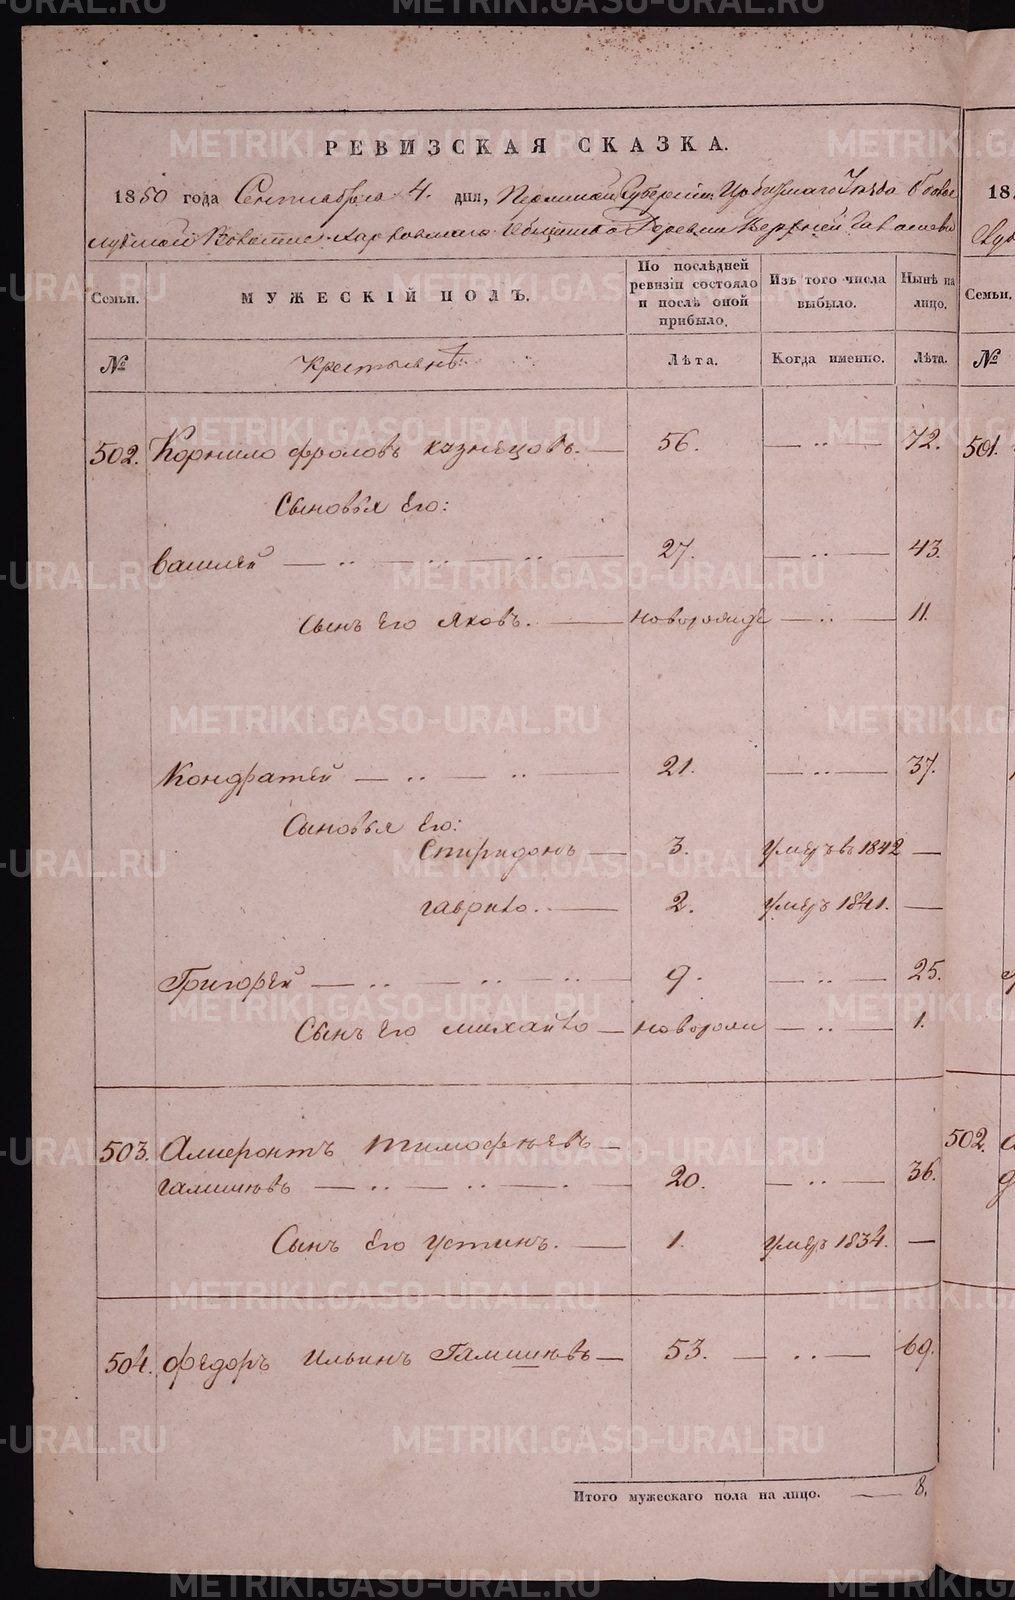 РЕВИЗСКАЯ СКАЗКА.
1850 года Сентября 4. дня, Пермской Губернии Ирбитскаго Уезда
Волости Харловскаго Общества Деревни Верхней
Семьи.
МУЖЕСКІЙ ПОЛЪ.
По послѣдней ревизіи состояло и послѣ оной прибыло.
Изъ того числа выбыло.
Нынѣ на лицо.
№ Крестьянъ: Лѣта. Когда именно. Лѣта.
502. Корнило Фроловъ Казнѣцовъ. — 56. — .. — 72.
Сыновья Его:
Василей — .. — .. — .. — 27. — .. — 43.
Сынъ Его Яковъ. — новорожде — .. — 11.
Кондратей — .. — .. — 21. — .. — 37.
Сыновья Его:
Спиридонъ — 3. Умеръ въ 1842 —
Гаврило. — 2. Умеръ 1841. —
Григорей — .. — .. — .. — 9. — .. — 25.
Сынъ Его Михайло — новорож — .. — 1.
503. Тимофѣевъ —
— .. — .. — . — 20. — .. — 36.
Сынъ Его Устинъ. — 1. Умеръ 1834. —
504. Федоръ Ильинъ — 53. — .. — 69.
Итого мужескаго пола на лицо. — 8.
18
Семьи.
№
501.
502.
METRIKI.GASO-URAL.RU